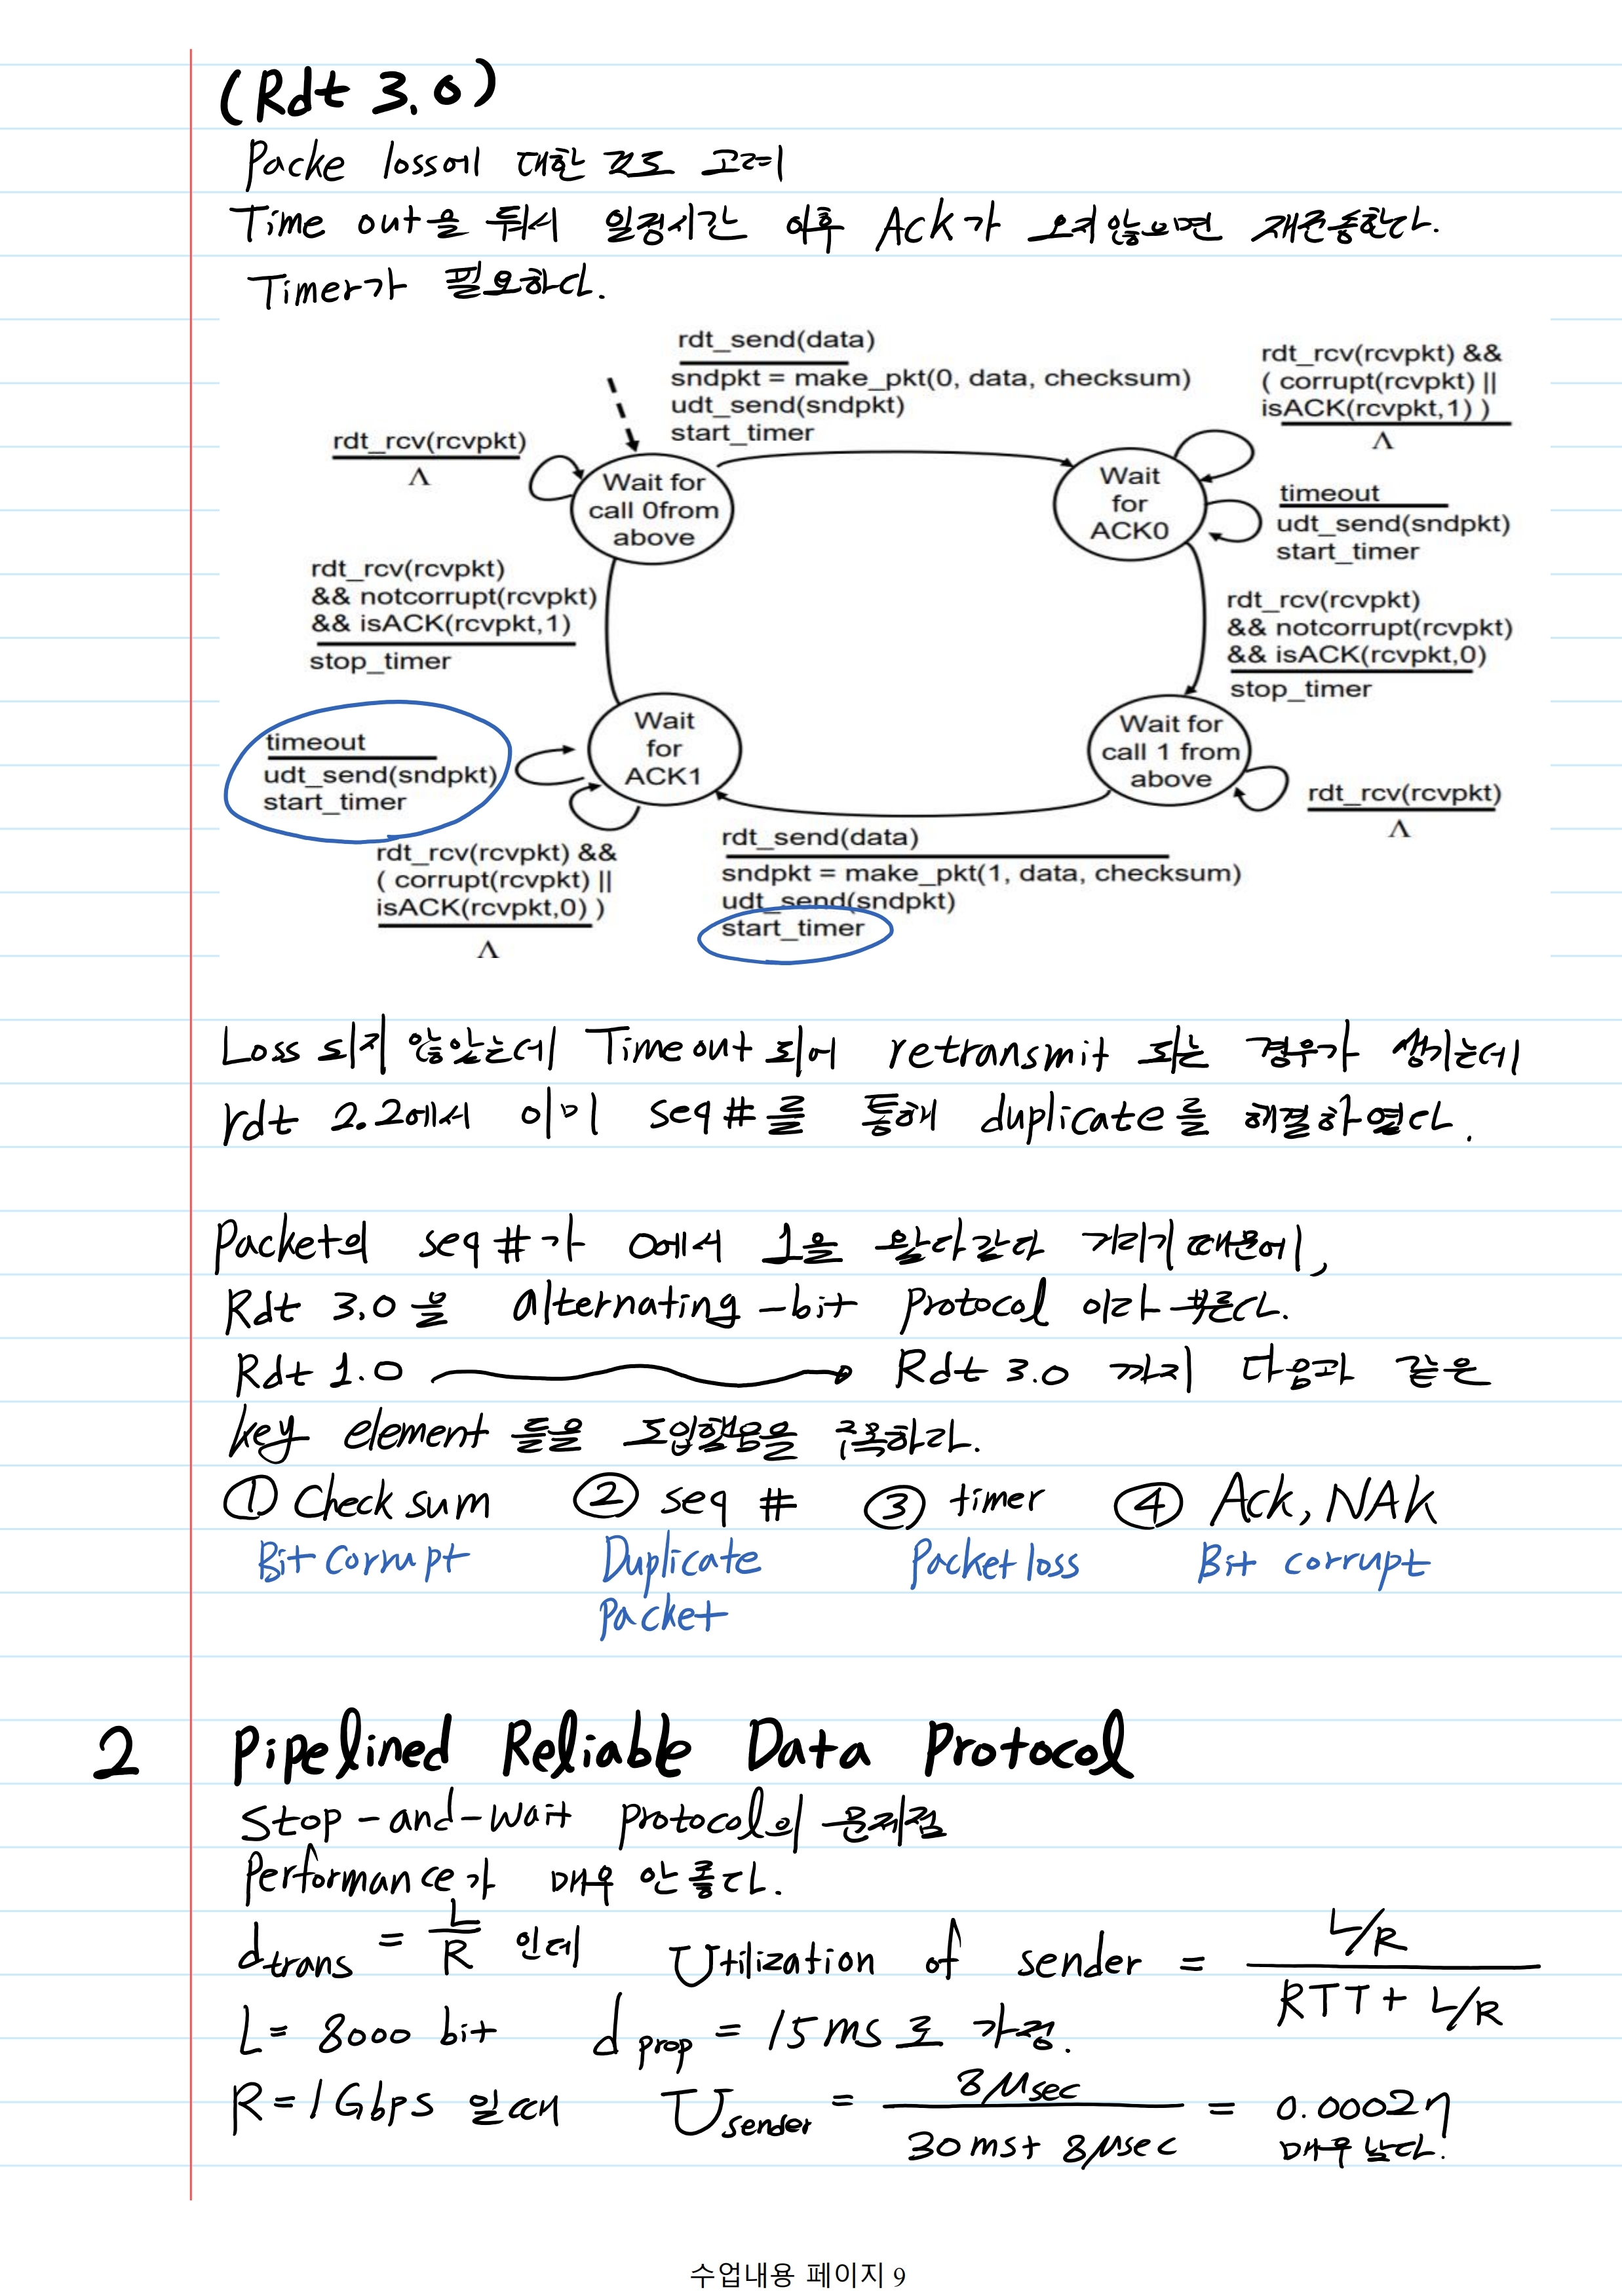 (Rdt 3.0)
Packe loss에 대한 것도 고려
Time out을 둬서 일정시간 이후 Ack가 오지않으면 재전송한다.
Timer가 필요하다.
rdt_send(data)
sndpkt = make_pkt(0, data, checksum)
udt_send(sndpkt)
start_timer
rdt_rcv(rcvpkt) &&
( corrupt(rcvpkt) ||
isACK(rcvpkt,1) )
Λ
rdt_rcv(rcvpkt)
Λ
Wait for
call 0from
above
Wait
for
ACK0
timeout
udt_send(sndpkt)
start_timer
rdt_rcv(rcvpkt)
&& notcorrupt(rcvpkt)
&& isACK(rcvpkt,1)
stop_timer
rdt_rcv(rcvpkt)
&& notcorrupt(rcvpkt)
&& isACK(rcvpkt,0)
stop_timer
timeout
udt_send(sndpkt)
start_timer
Wait
for
ACK1
Wait for
call 1 from
above
rdt_rcv(rcvpkt)
Λ
rdt_rcv(rcvpkt) &&
( corrupt(rcvpkt) ||
isACK(rcvpkt,0) )
Λ
rdt_send(data)
sndpkt = make_pkt(1, data, checksum)
udt_send(sndpkt)
start_timer
Loss 되지 않았는데 Timeout 되어 retransmit 되는 경우가 생기는데
rdt 2.2에서 이미 seq #를 통해 duplicate를 해결하였다.
Packet의 seq #가 0에서 1을 왔다갔다 거리기 때문에,
Rdt 3.0을 alternating-bit protocol 이라 부른다.
Rdt 1.0 → Rdt 3.0 까지 다음과 같은
key element 들을 도입했음을 주목하라.
① Check sum ② seq # ③ timer ④ Ack, NAK
Bit corrupt Duplicate Packet loss Bit corrupt
Packet
2 Pipelined Reliable Data Protocol
Stop-and-wait protocol의 문제점
Performance가 매우 안좋다.
d_trans = L/R 인데 Utilization of sender = (L/R)/(RTT + L/R)
L= 8000 bit d_prop = 15ms 로 가정.
R=1Gbps 일때 U_sender = 8μsec/(30ms+ 8μsec) = 0.00027
매우 낮다.
수업내용 페이지 9